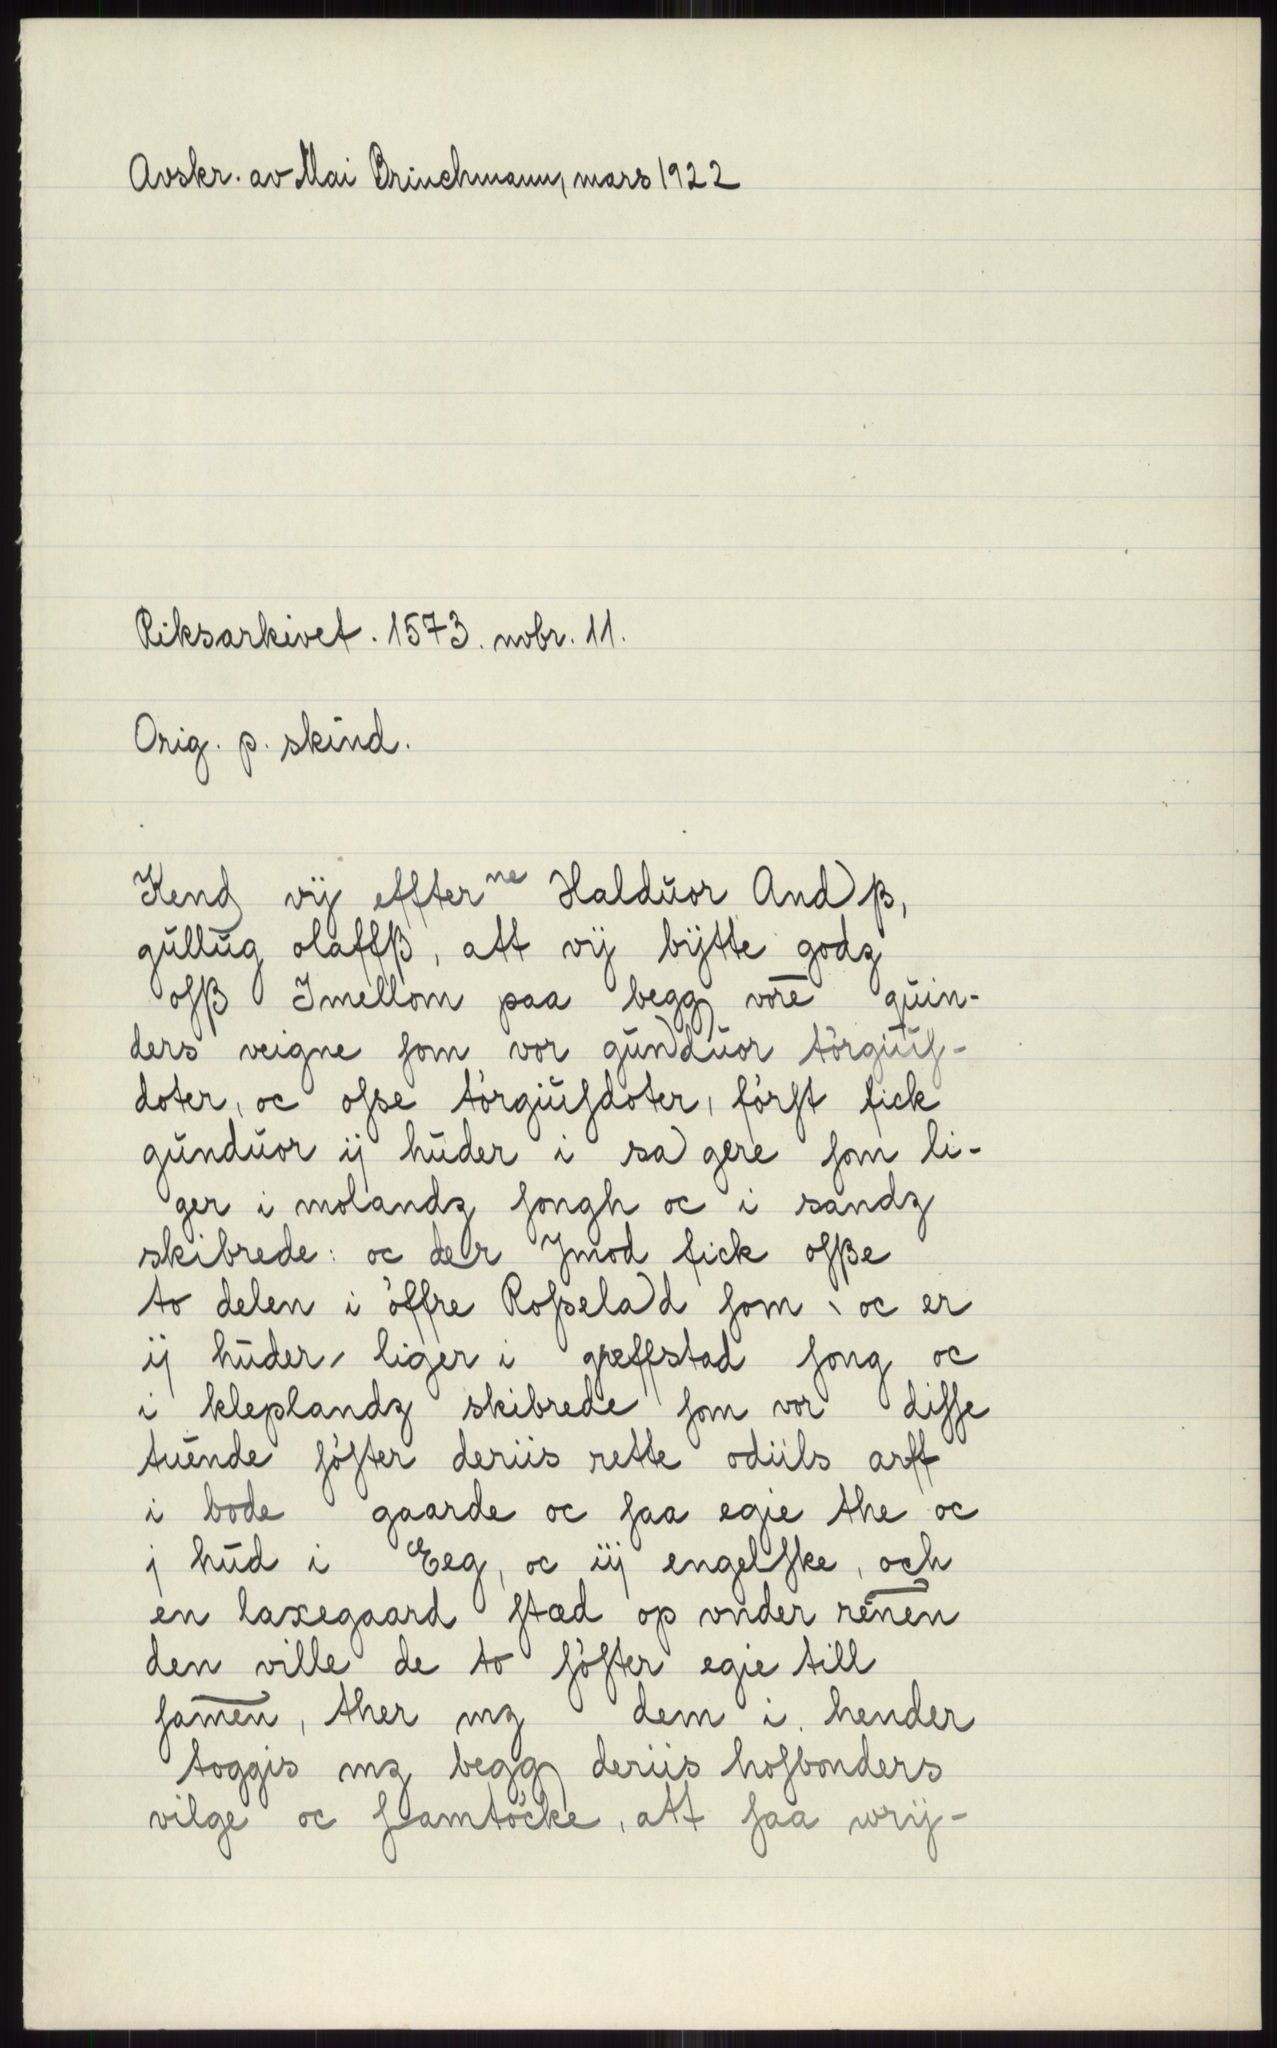 Avskr. av Mai Brinchmann, mars 1922
Riksarkivet. 1573. nobr. 11.
Orig. p. skind.
Kend vij effter ne Halduor And ß,
gullug olaffß, att vij bytte godz
osß Imellom paa begg vore quin-
ders veigne som vor gunduor törgius-
doter, oc osse törgiusdoter, först fick
gunduor ij huder i sa gere som li-
ger i molandz songh oc i sandz
skibrede: oc der Jmod fick osße
to delen i öffre Rosselad som oc er
ij huder, liger i greffstad song oc
i kleplandz skibrede som vor disse
tuende söster deriis rette odiils arff
i bode gaarde oc saa egie the oc
j hud i Eeg, oc iij engelske, och
en laxegaard stæd op vnder renen
den ville de to söster egie till
samen, ther mz dem i hender
toggis mz begg deriis hosbonders
vilge oc samtöcke, att saa wrij-